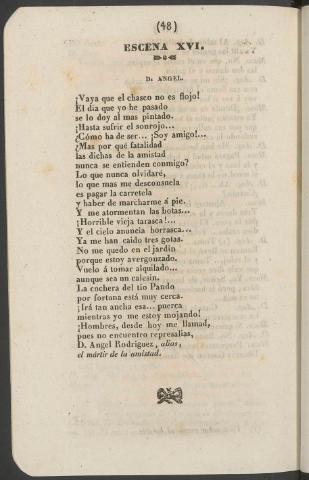 (48)
ESCENA XVI.
D. ANGEL.
¡Vaya que el chasco no es flojo!
El dia que yo he pasado
se lo doy al mas pintado.
¡Hasta sufrir el sonrojo...
¿Cómo ha de ser... ¡Soy amigo!...
¿Mas por qué fatalidad
las dichas de la amistad
nunca se entienden conmigo?
Lo que nunca olvidaré,
lo que mas me desconsuela
es pagar la carretela
y haber de marcharme á pie.
Y me atormentan las botas...
¡Horrible vieja tarasca!...
Y el cielo anuncia borrasca...
Ya me han caido tres gotas.
No me quedo en el jardin
porque estoy avergonzado.
Vuelo á tomar alquilado...
aunque sea un calesin.
La cochera del tio Pando
por fortuna está muy cerca.
¡Irá tan ancha esa... puerca
mientras yo me estoy mojando!
¡Hombres, desde hoy me llamad,
pues no encuentro represalias,
D. Angel Rodriguez, alias,
el mártir de la amistad.